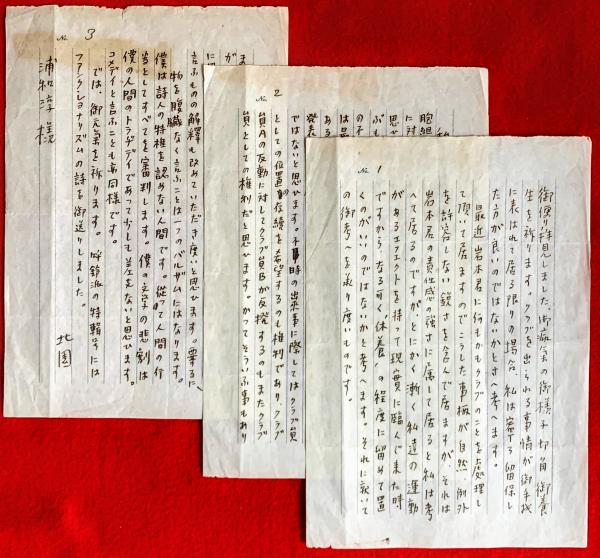 No. 1
御便り拝見しました。御病気の御様子切角御養
生を祈ります。クラブを出られる事情が御手紙
に表はれ居る限りの場合、私は寧ろ留保し
た方が良いのではないかとさへ考へます。
最近岩本君に何もかもクラブのことを処理し
て頂いて居ますのでこうした事柄が自然、例外
を許容しない鋭さを含んで居ますが、それは
岩本君の責任感の強さに属して居ると私は考
へて居るのですがとにかく漸く私達の運動
があるエフェクトを持って現実に臨んで来た時
ですからなるべく休養、の程度に留めて置
くのがいいのではないかと考へます。それに就いて
の御考へを承り度いものです。
No. 2
私
胞組
に対
思ひ
ぶも
の不
は最
発表
ではないと思ひます。不時の出来事に際してはクラブ員
としての位置の存続を希望するのも権利であり、クラブ
員Aの反動に対してクラブ員Bが反撥するのもまたクラブ
員としての権利だと思ひます。かつてそういふ事もあり
No. 3
ま
が
に
言ふものの解釈も改めていただき度いと思ひます。要するに、
物を腹臓なく言ふことは一つのバルザムにはなります。
僕は詩人の特権を認めない人間です。従って人間の行
為としてすべてを審判します。僕の文学の悲劇は
僕の人間のトラヂデイであって少しも差支ないと思ひます。
コメデイと言ふことも亦同様です。
では、御元気を祈ります。呼鈴派の特輯号には
ファンクショナリズムの詩を御送りしました。
北園
浦和淳様